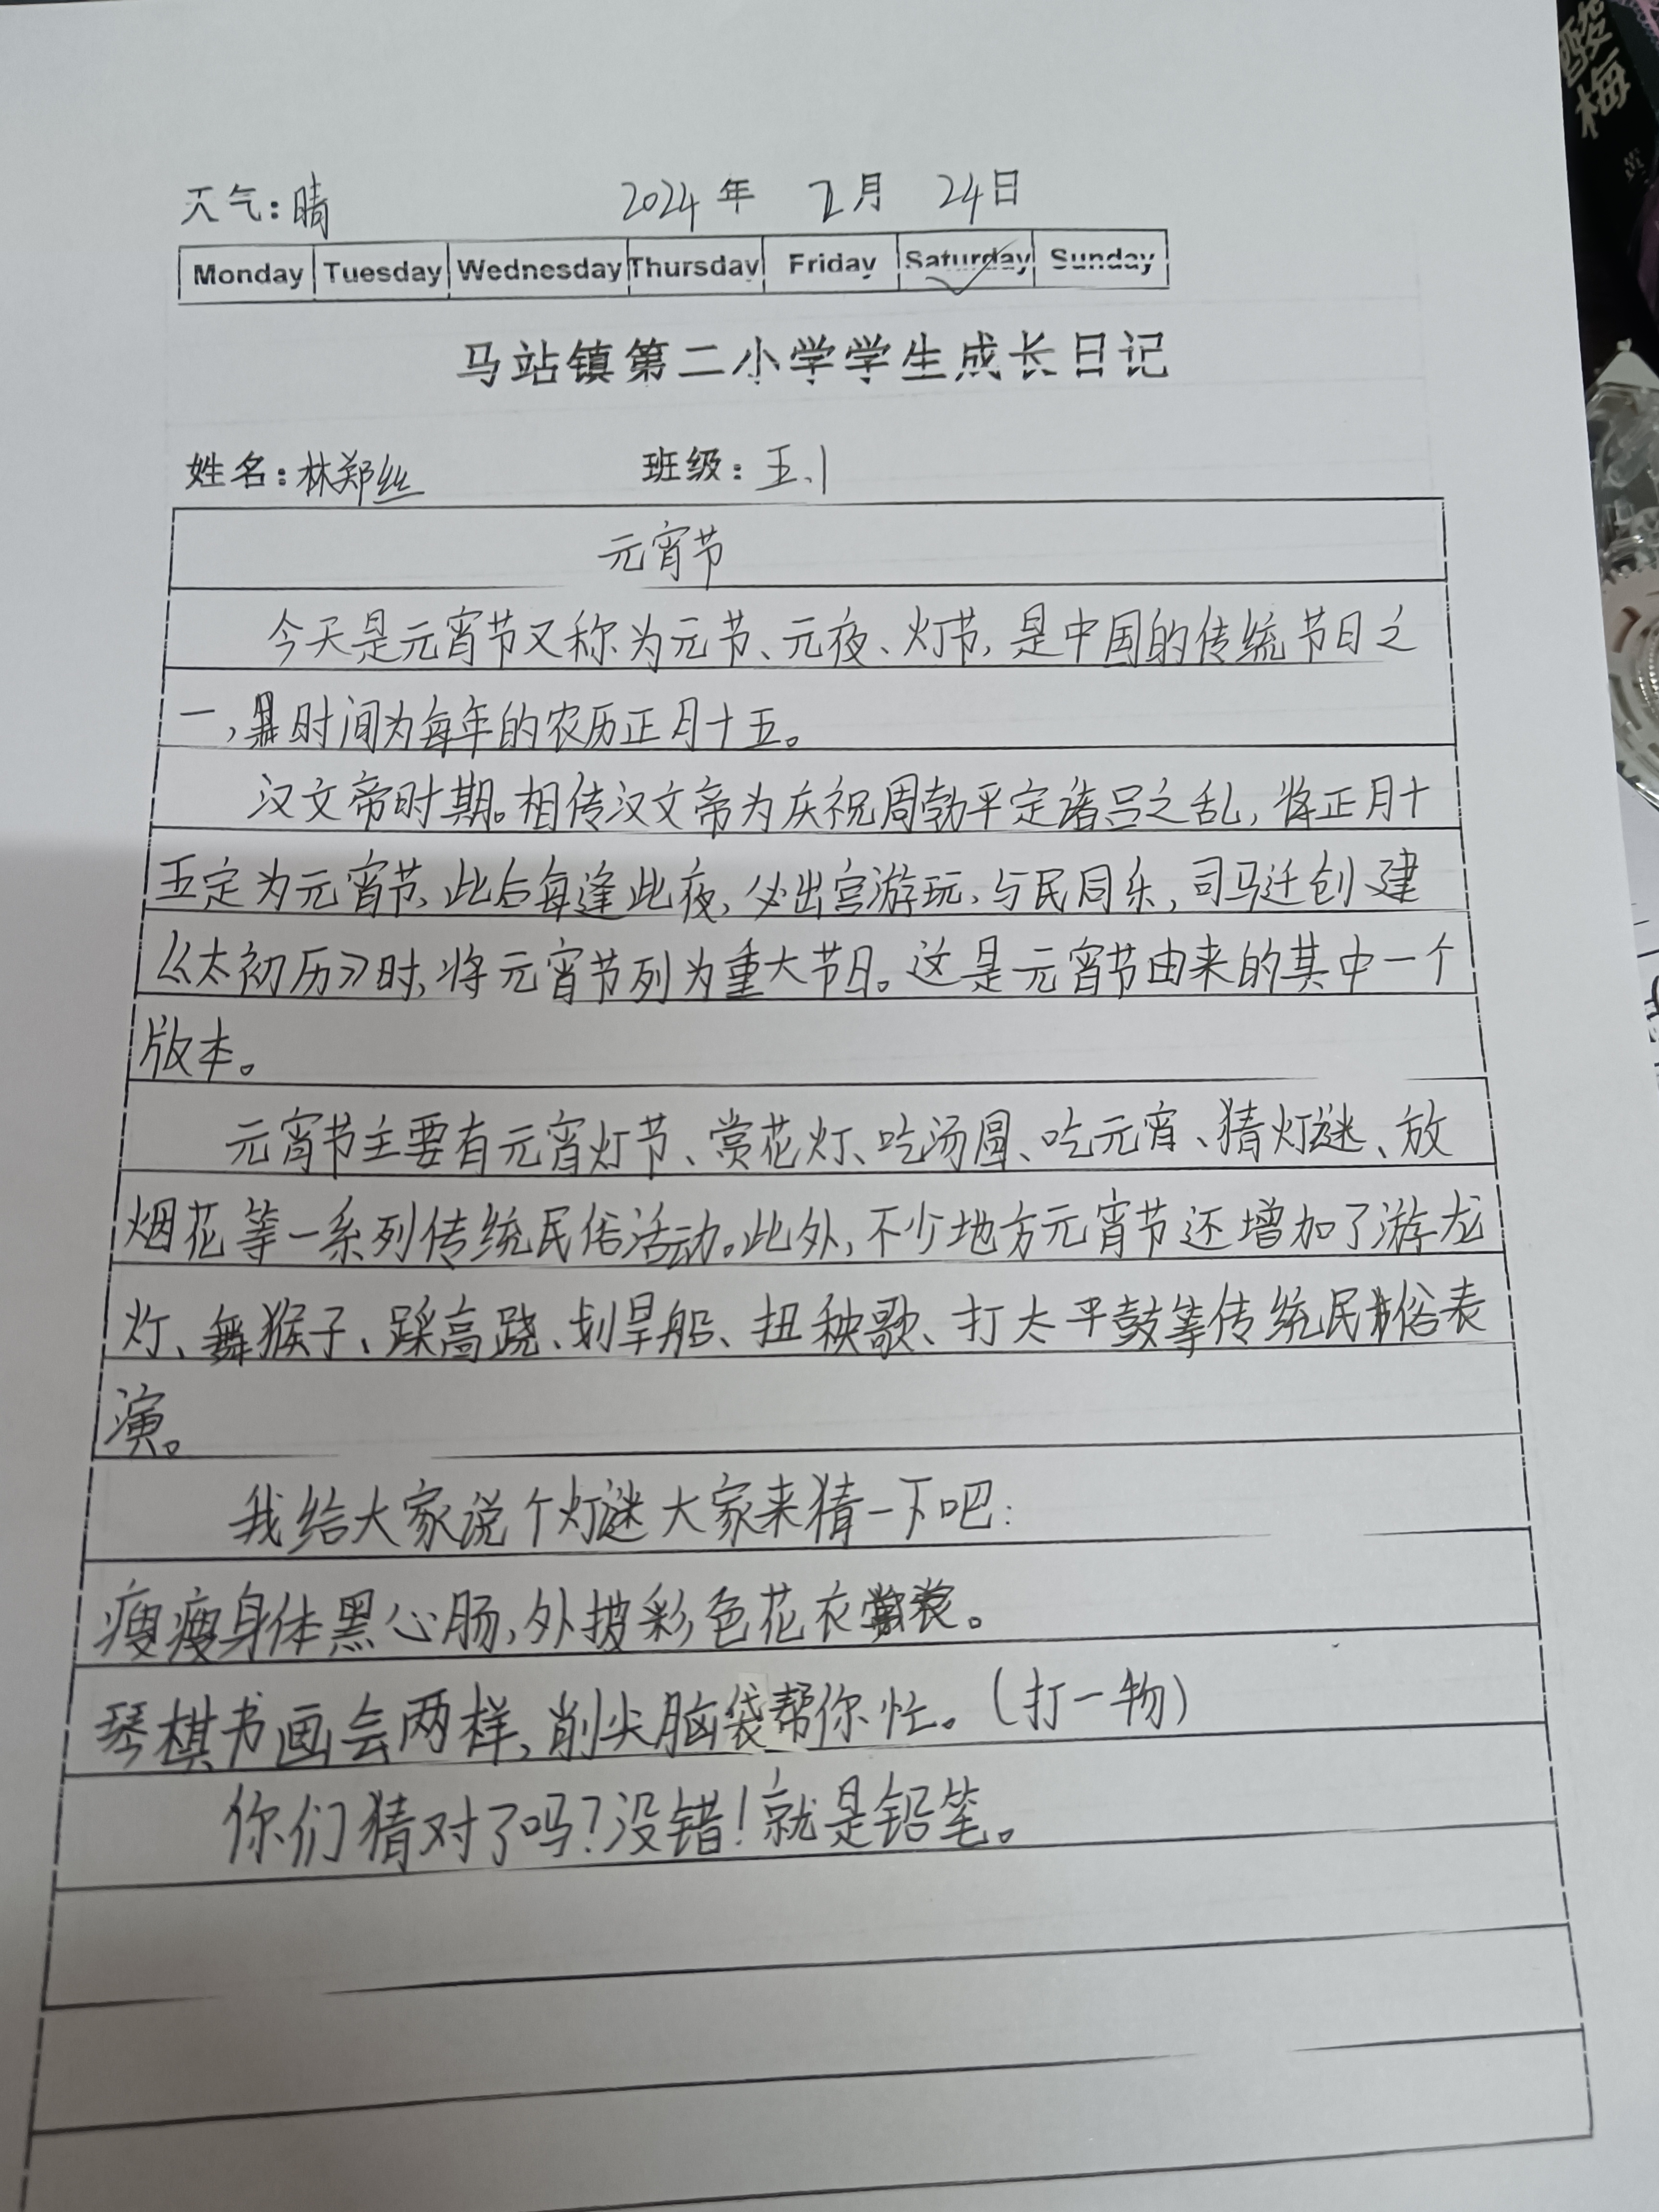 酸
梅
天气：晴 2024年 2月 24日
Monday Tuesday Wednesday Thursday Friday Saturday Sunday
马站镇第二小学学生成长日记
姓名：林郑丝 班级：五.1
元宵节
今天是元宵节又称为元节、元夜、灯节，是中国的传统节日之
一，時间为每年的农历正月十五。
汉文帝时期。相传汉文帝为庆祝周勃平定诸吕之乱，将正月十
五定为元宵节，此后每逢此夜，必出宫游玩，与民同乐，司马迁创建
《太初历》时，将元宵节列为重大节日。这是元宵节由来的其中一个
版本。
元宵节主要有元宵灯节、赏花灯、吃汤圆、吃元宵、猜灯谜、放
烟花等一系列传统民俗活动。此外，不少地方元宵节还增加了游龙
灯、舞猴子、踩高跷、划旱船、扭秧歌、打太平鼓等传统民俗表
演。
我给大家说个灯谜大家来猜一下吧：
瘦瘦身体黑心肠，外披彩色花衣裳。
琴棋书画会两样，削尖脑袋帮你忙。（打一物）
你们猜对了吗？没错！就是铅笔。